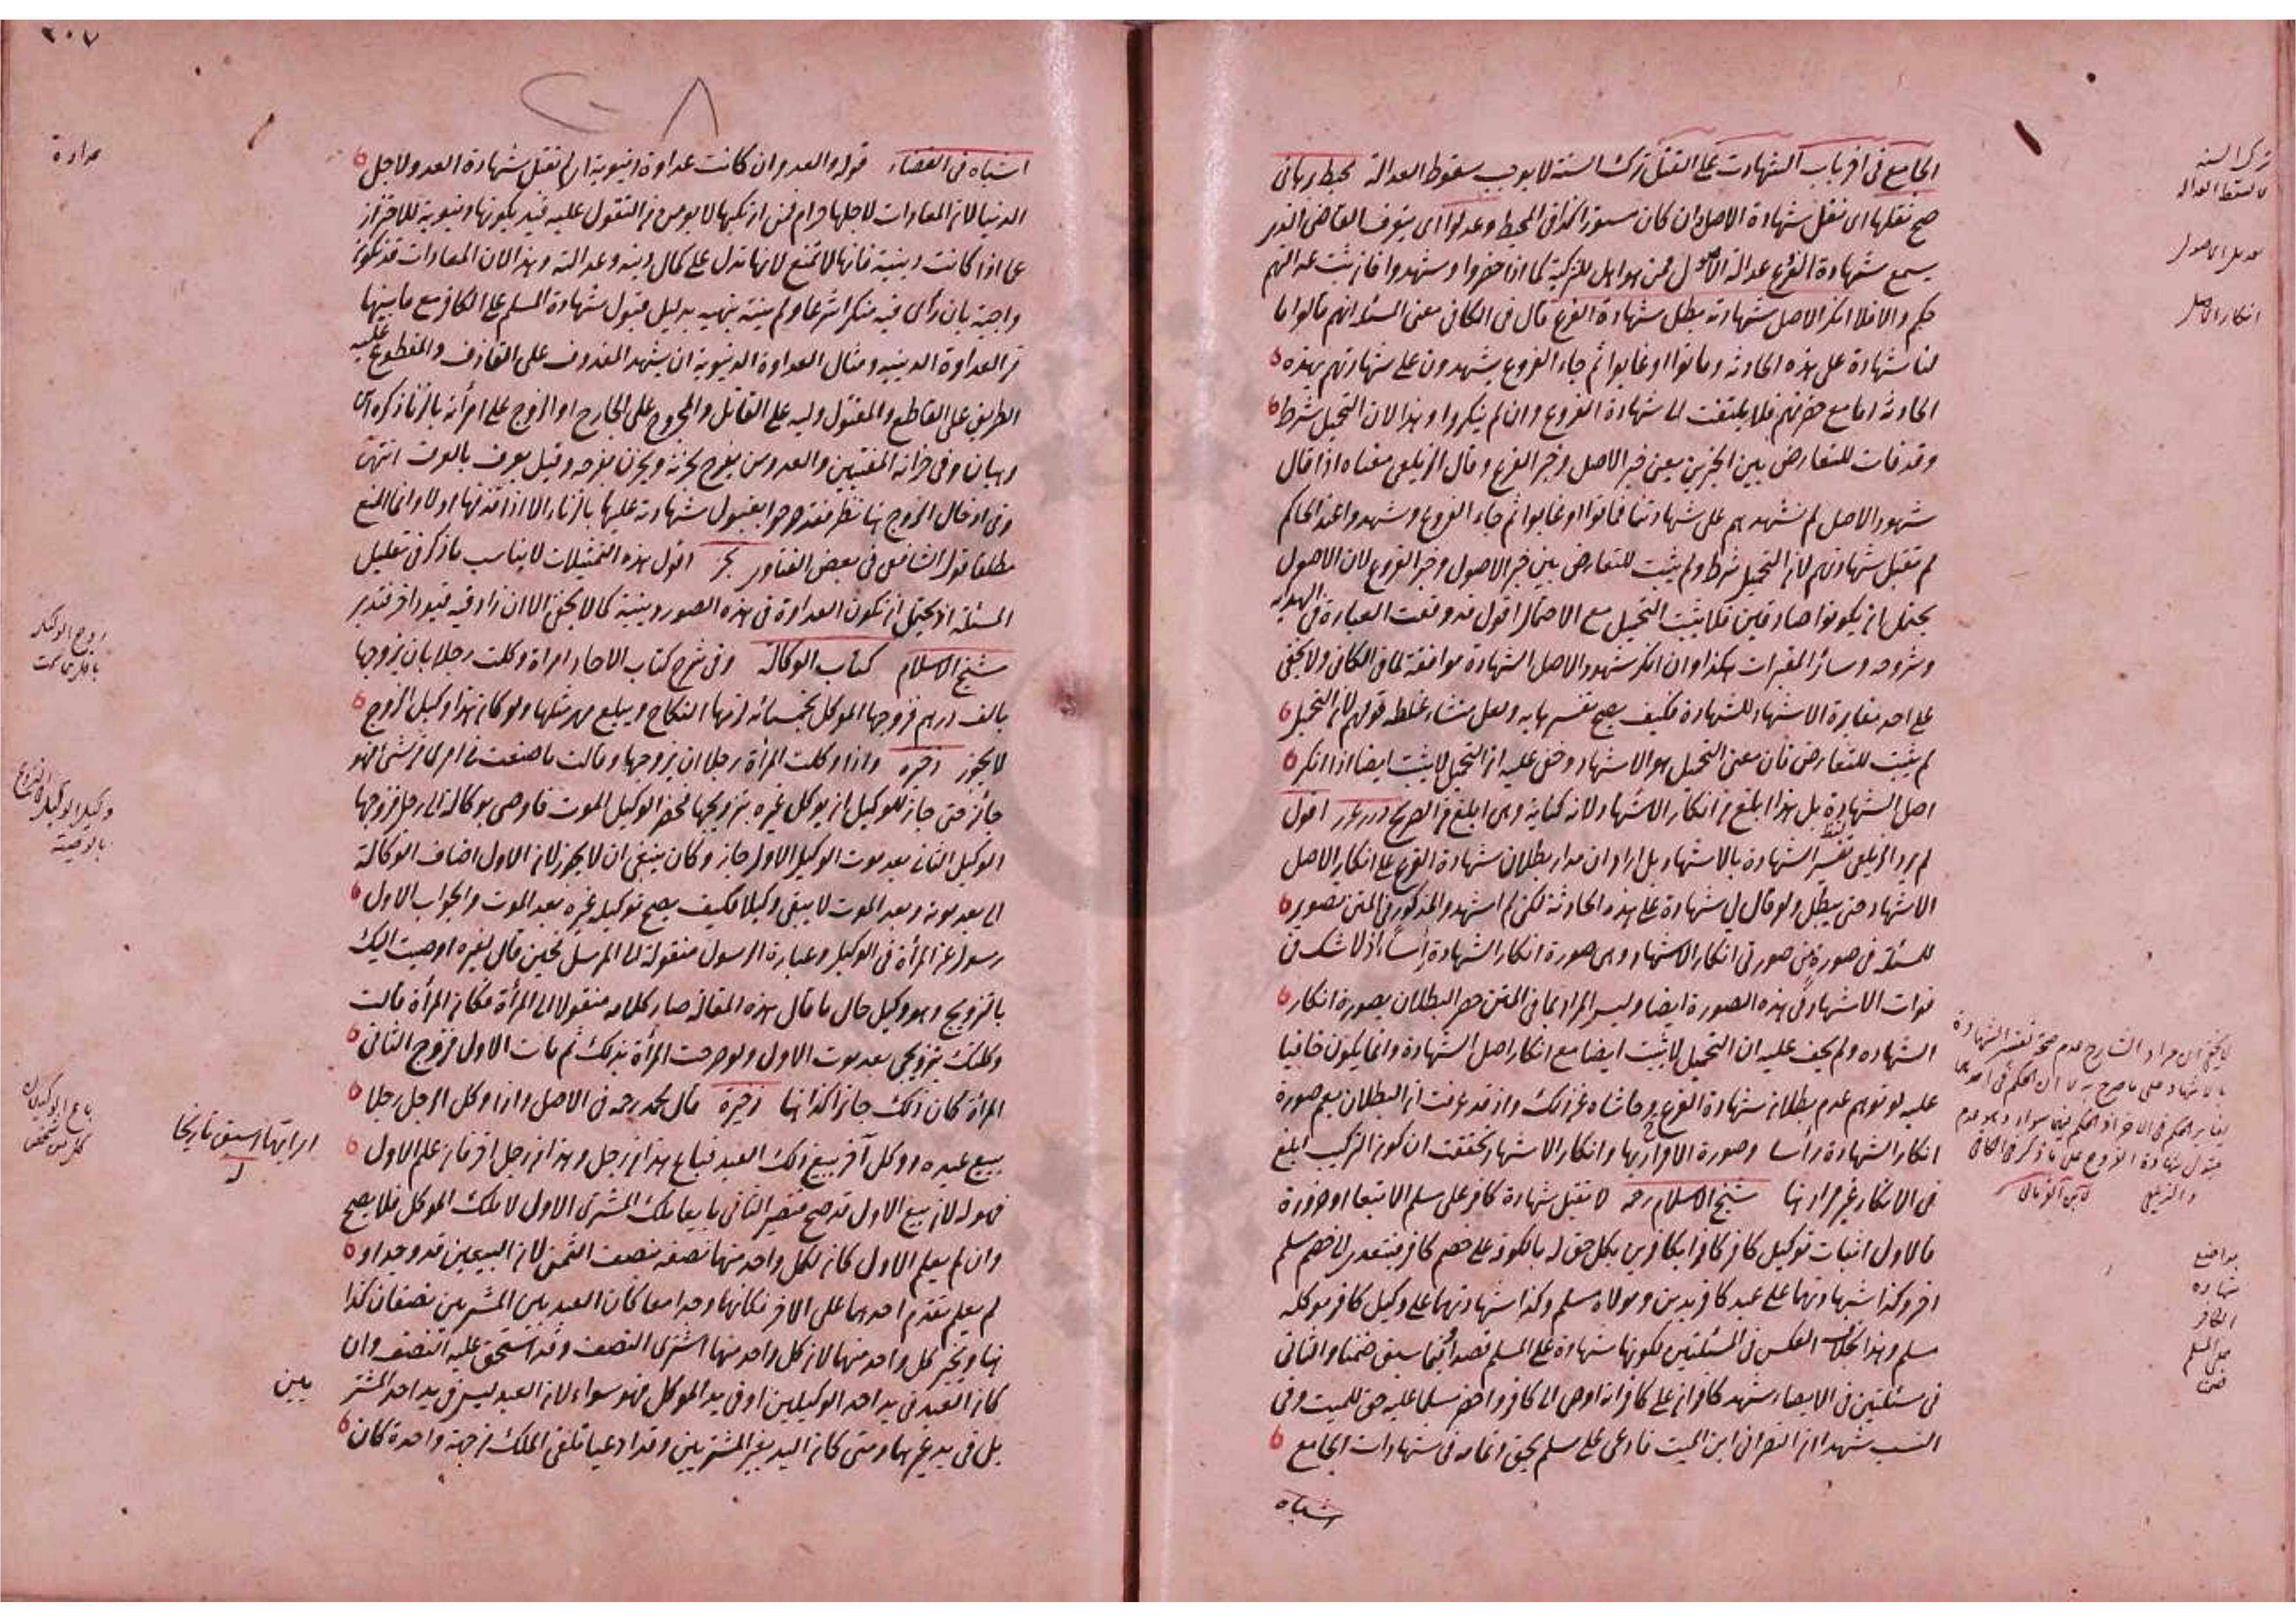 الجامع فى اخر باب الشهادات على القتل ترك السنة لا يوجب سقوط العدالة محيط برهانى
صح نقلها اى نقل شهادة الاصل وان كان مستورا كذا فى المحيط وعدلوا اى يتعرف القاضى الذى
يسمع شهادة الفرع عدالة الاصول ممن هو اهل للتزكية كما اذا حضروا وشهدوا فان ثبت عدالتهم
حكم والا فلا انكر الاصل شهادته يبطل شهادة الفرع قال فى الكافى معنى المسئلة انهم قالوا ما
لنا شهادة على هذه الحادثة وماتوا او غابوا ثم جاء الفروع يشهدون على شهادتهم بهذه
الحادثة اما مع حضرتهم فلا يلتفت الى شهادة الفروع وان لم ينكروا وهذا لان التحميل شرط
وقد فات للتعارض بين الخبرين يعنى خبر الاصل وخبر الفرع وقال الزيلعى معناه اذا قال
شهود الاصل لم نشهدهم على شهادتنا فماتوا او غابوا ثم جاء الفروع وشهدوا عند الحاكم
لم تقبل شهادتهم لان التحميل شرط ولم يثبت للتعارض بين خبر الاصول وخبر الفروع لان الاصول
يحتمل ان يكونوا صادقين فلا يثبت التحميل مع الاحتمال اقول قد وقعت العبارة فى الهداية
وشروحه وسائر المعتبرات هكذا وان انكر شهود الاصل الشهادة موافقة لما فى الكافى ولا يخفى
على احد مغايرة الاشهاد للشهادة فكيف يصح تفسيرها به ولعل منشاء غلطه قولهم لان التحميل
لم يثبت للتعارض فان معنى التحميل هو الاشهاد وخفى عليه ان التحميل لا يثبت ايضا اذا انكر
اصل الشهادة بل هذا ابلغ من انكار الاشهاد لانه كناية وهى ابلغ من الصريح درر غرر اقول
لم يرد الزيلعى تفسير الشهادة بالاشهاد بل اراد ان مدار بطلان شهادة الفرع على انكار الاصل
الاشهاد حتى يبطل ولو قال لى شهادة على هذه الحادثة لكن لم اشهد والمذكور فى المتن تصوير
للمسئلة فى صورة من صورتى انكار الاشهاد وهى صورة انكار الشهادة رأسا اذ لا شك فى
فوات الاشهاد فى هذه الصورة ايضا وليس المراد بما فى المتن حصر البطلان بصورة انكار
الشهادة ولم يخف عليه ان التحميل لا يثبت ايضا مع انكار اصل الشهادة وانما يكون خافيا
عليه لو توهم عدم بطلان شهادة الفرع وحاشاه عن ذلك واذ قد عرفت ان البطلان يعم صورة
انكار الشهادة رأسا وصورة الاقرار بها وانكار الاشهاد تحققت ان كون التركيب ابلغ
فى الانكار غير مراد هنا شيخ الاسلام رحمه لا تقبل شهادة كافر على مسلم الا تبعا او ضرورة
فالاول اثبات توكيل كافر كافرا بكافرين بكل حق له بالكوفة على خصم كافر فيتعدى الى خصم مسلم
اخر وكذا شهادتهما على عبد كافر بدين ومولاه مسلم وكذا شهادتهما على وكيل كافر موكله
مسلم وهذا بخلاف العكس فى المسئلتين لكونها شهادة على المسلم قصدا وفيما سبق ضمنا والثانى
فى مسئلتين فى الايصاء شهد كافران على كافر انه اوصى الى كافر واحضر مسلما عليه حق للميت وفى
النسب شهدا ان النصرانى ابن الميت فادعى على مسلم بحق وتمامه فى شهادات الجامع
اشباه
ترك السنة
لا يسقط العدالة
تعديل الاصول
انكار الاصل
مواضع
شهادة
الكافر
على المسلم
٢٠٧
اشباه فى القضاء قوله والعدو ان كانت عداوة دنيوية اى لم تقبل شهادة العدو لاجل
الدنيا لان المعادات لاجلها حرام فمن ارتكبها لا يؤمن من التقول عليه قيد بكونها دنيوية للاحتراز
عما اذا كانت دينية فانها لا تمنع لانها تدل على كمال دينه وعدالته وهذا لان المعادات قد تكون
واجبة بان رأى فيه منكرا شرعا ولم ينته بنهيه بدليل قبول شهادة المسلم على الكافر مع ما بينهما
من العداوة الدينية ومثال العداوة الدنيوية ان يشهد المقذوف على القاذف والمقطوع عليه
الطريق على القاطع والمقتول وليه على القاتل والمجروح على الجارح او الزوج على امرأته بالزنا ذكره ابن
وهبان وفى خزانة المفتيين والعدو من يفرح بحزنه ويحزن بفرحه وقيل يعرف بالعرف انتهى
وفى ادخال الزوج هنا نظر فقد صرحوا بقبول شهادته عليها بالزنا الا اذا قذفها اولا وانما المنع
مطلقا قول الشافعى فى بعض الفتاوى بحر اقول هذه التمثيلات لا يناسب ما ذكر فى تعليل
المسئلة اذ يحتمل ان تكون العداوة فى هذه الصور دينية كما لا يخفى الا ان زاد فيه قيود اخر فتدبر
شيخ الاسلام كتاب الوكالة وفى شرح كتاب الاجار امراة وكلت رجلا بان يزوجها
بالف درهم فزوجها الموكل بخمسمائة لزمها النكاح ويبلغ مهر مثلها ولو كان هذا وكيل الزوج
لا يجوز ذخيره واذا وكلت المرأة رجلا ان يزوجها وقالت ما صنعت فى امرى من شئ فهو
جائز حتى جاز للوكيل ان يوكل غيره بتزويجها فحضر الوكيل الموت فاوصى بوكالته الى رجل فزوجها
الوكيل الثانى بعد موت الوكيل الاول جاز وكان ينبغى ان لا يجوز لان الاول اضاف الوكالة
الى بعد موته وبعد الموت لا يبقى وكيلا فكيف يصح توكيله غيره بعد الموت والجواب الاول
رسول عن المرأة فى الوكيل وعبارة الرسول منقولة الى المرسل فحين قال لغيره اوصيت اليك
بالتزويج وهو وكيل حال ما قال هذه المقالة صار كلامه منقولا الى المرأة فكان المرأة قالت
وكلتك بتزويجى بعد موت الاول ولو صرحت المرأة بذلك ثم مات الاول فزوج الثانى
المرأة كان ذلك جائزا كذا هنا ذخيرة قال محمد رحمه فى الاصل واذا وكل الرجل رجلا
ببيع عبده ووكل آخر ببيع ذلك العبد فباع هذا من رجل وهذا من رجل اخر فان علم الاول
فهو له لان بيع الاول قد صح فيصير الثانى بايعا ملك المشترى الاول لا ملك الموكل فلا يصح
وان لم يعلم الاول كان لكل واحد منهما نصفه بنصف الثمن لان البيعين قد وجدا و
لم يعلم تقدم احدهما على الاخر فكانهما وجدا معا كان العبد بين المشتريين نصفان كذا
هنا ويخير كل واحد منهما لان كل واحد منهما اشترى النصف وقد استحق عليه النصف وان
كان العبد فى يد احد الوكيلين او فى يد الموكل فهو سواء لان العبد ليس فى يد احد المشتر
يين
بل فى يد غيرهما ومتى كان اليد بغير المشتريين وقد ادعيا تلقى الملك من جهة واحدة كان
عداوة
زوج الوكيل
وكيل الوكيل
اى ايهما اسبق تاريخا